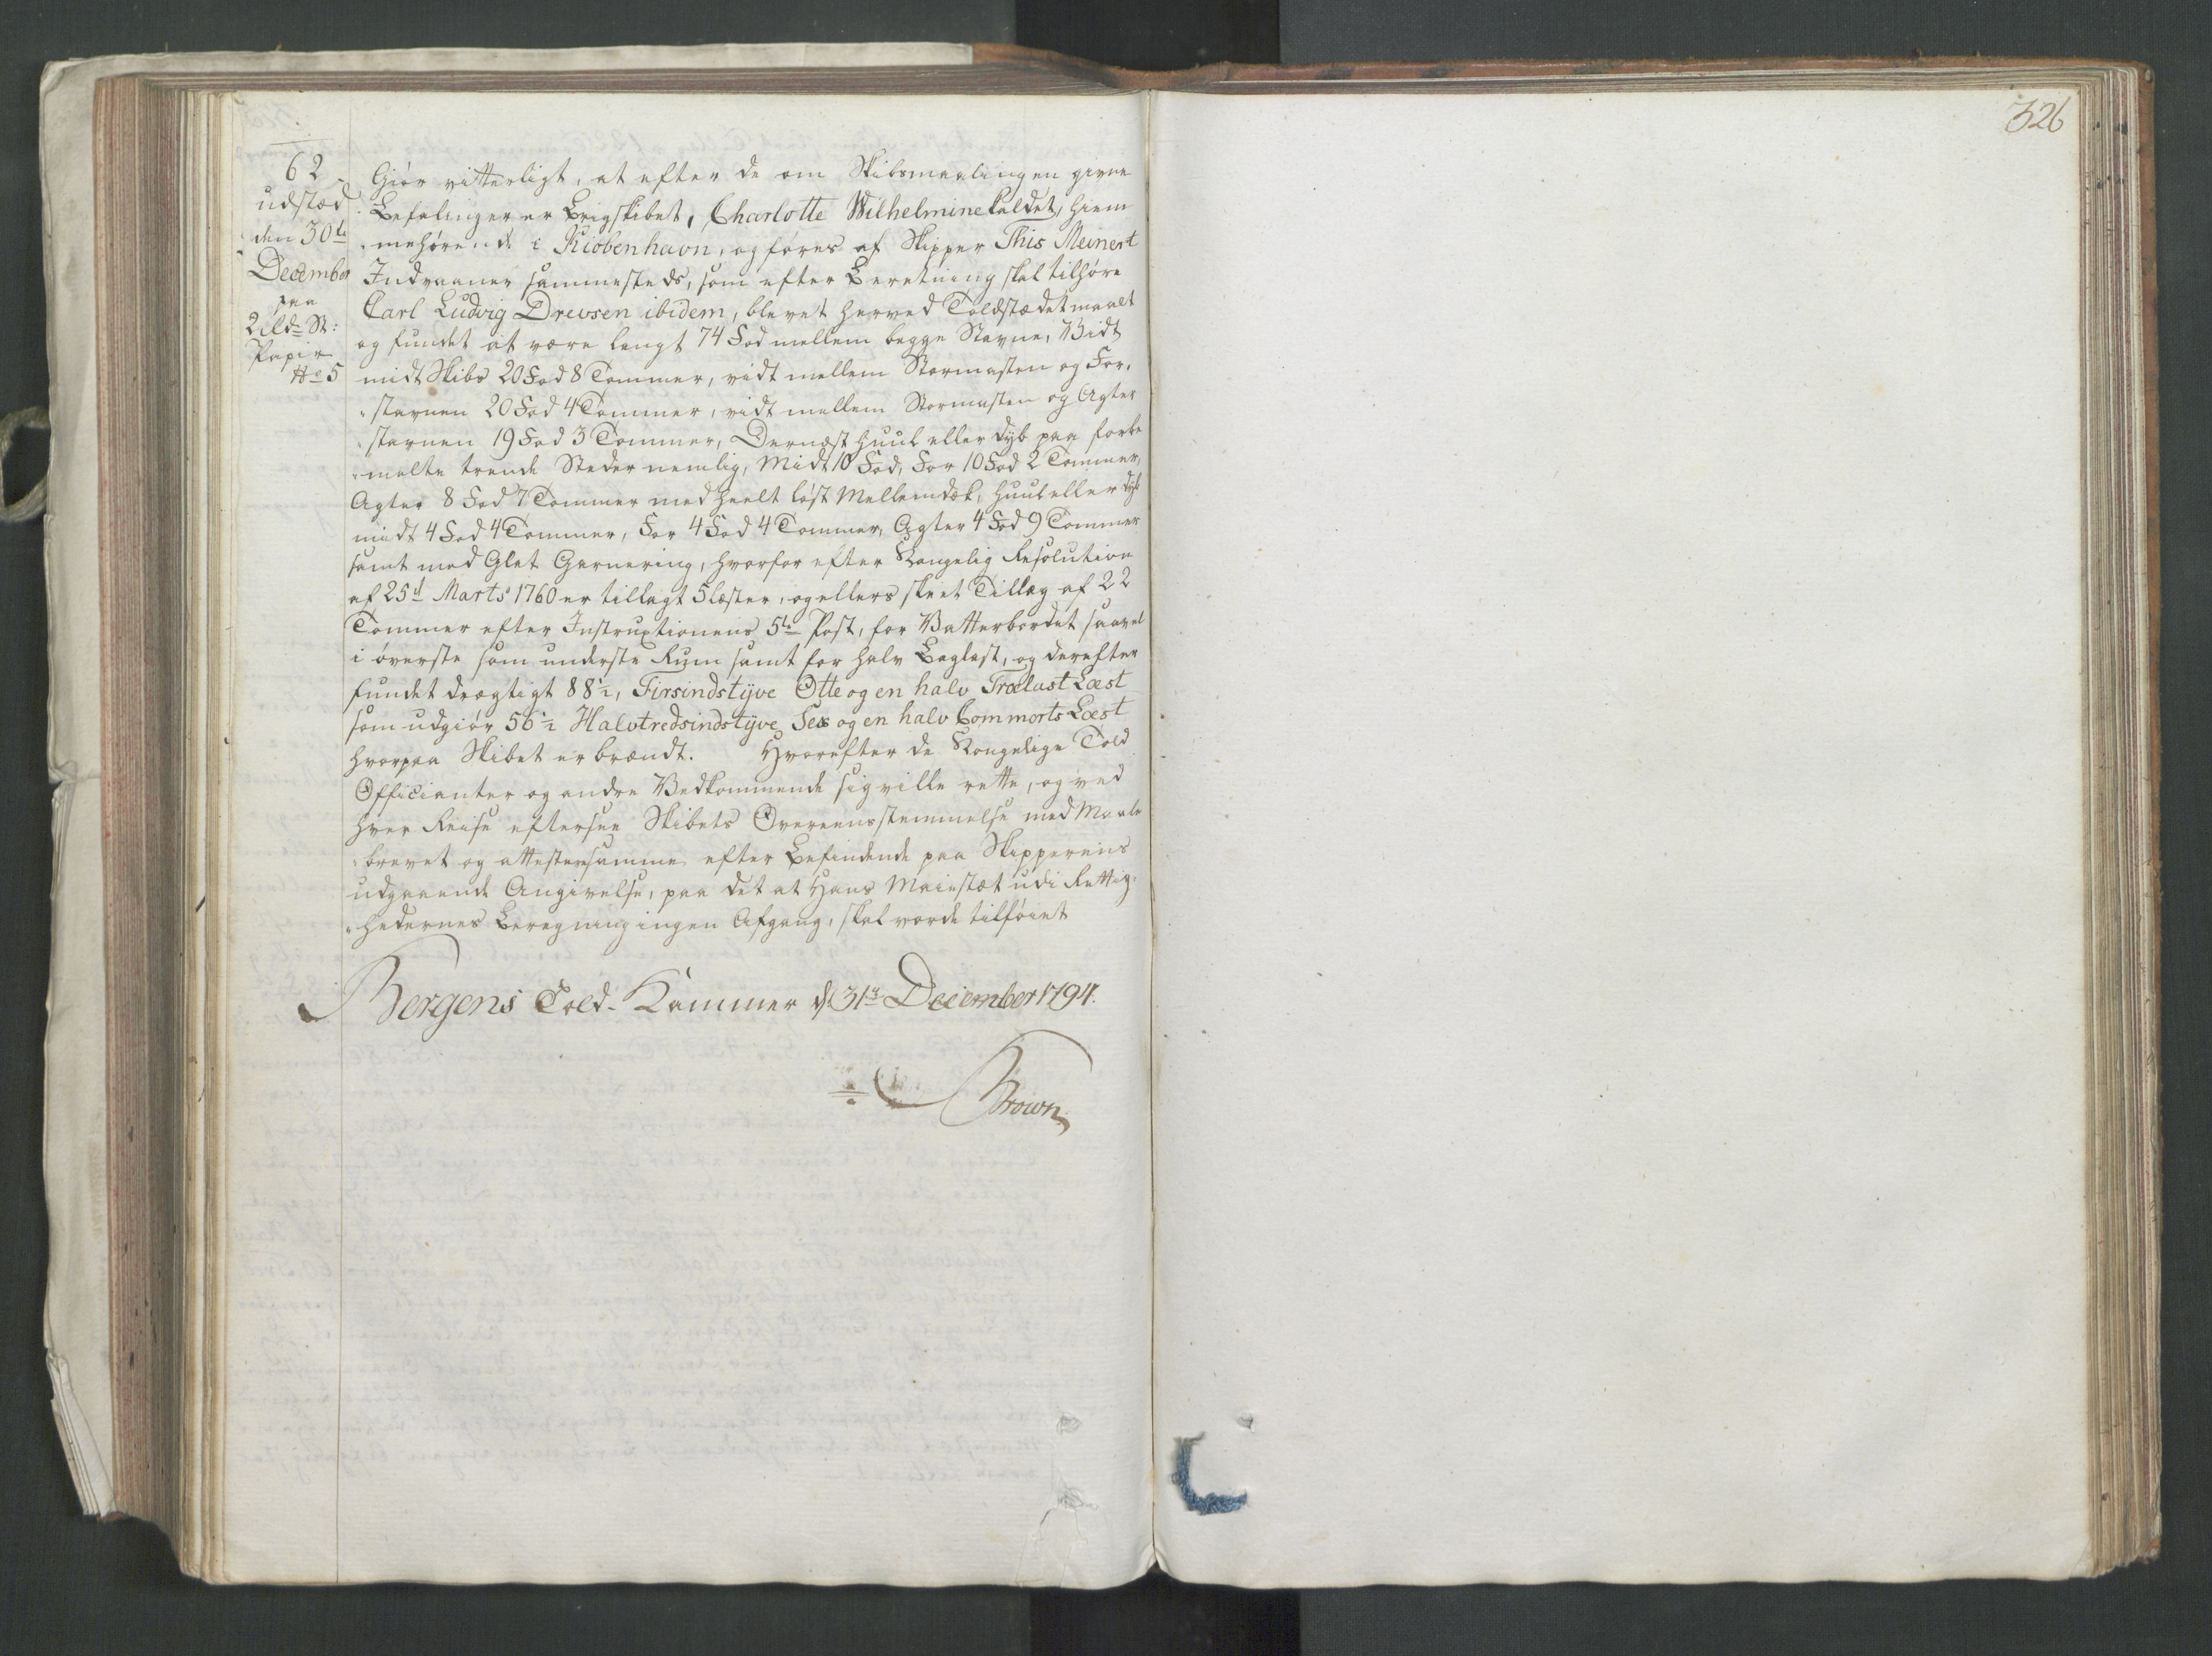 326
62
udstæd
den 30te
December
paa
2 Rd St:
Papir
No 5
Giør vitterligt, at efter de om Skibsmaalingen givne
Befalinger er Brigskibet, Charlotte Wilhelmine kaldet, hiem
mehørende i Kiøbenhavn, og føres af Skipper This Meinert
Indvaaner sammesteds, som efter Beretning skal tilhøre
Carl Ludvig Drevsen ibidem, blevet herved Toldstædet maalt
og fundet at være langt 74 Fod mellem begge Stavne, Vidt
midt Skibs 20 Fod 8 Tommer, vidt mellem Stormasten og For,
stavnen 20 Fod 4 Tommer, vidt mellem Stormasten og Agter
stavnen 19 Fod 3 Tommer, Dernæst huul eller dyb paa forbe
melte trende Steder nemlig, Midt 10 Fod, For 10 Fod 2 Tommer,
Agter 8 Fod 7 Tommer med heelt løst Mellemdæk, huul eller dyb
midt 4 Fod 4 Tommer, For 4 Fod 4 Tommer, Agter 4 Fod 9 Tommer
samt med Glat Garnering, hvorfor efter Kongelig Resolution
af 25d Marts 1760 er tillagt 5 læster, og ellers skeet Tillæg af 22
Tommer efter Instruxtionens 5te Post, for Vatterbordet saavel
i øverste som underste Rum samt for halv Baglast, og derefter
fundet drægtigt 88½, Firsindstÿve Otte og en halv Trælast Læst
som udgiør 56½ Halvtredsindstÿve Sex og en halv Commerts Læst
hvorpaa Skibet er brændt. Hvorefter de Kongelige Told
Officianter og andre Vedkommende sig ville rette, og ved
hver Reise eftersee Skibets Overeensstemmelse med Maale
brevet og attestere samme efter Befindende paa Skipperens
udgaaende Angivelse, paa det at Hans Maiestæt udi Rettig,
hedernes Beregning ingen Afgang, skal vorde tilføiet
Bergens Told-Kammer d. 31te December 1794.
Brown